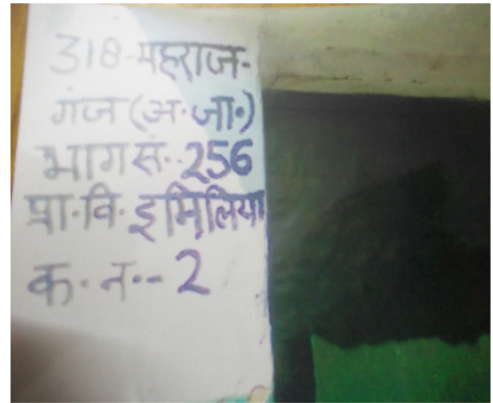 318-महराज-
गंज (अ.जा.)
भाग सं.-256
प्रा.वि. इमिलिया
क.न.-- 2